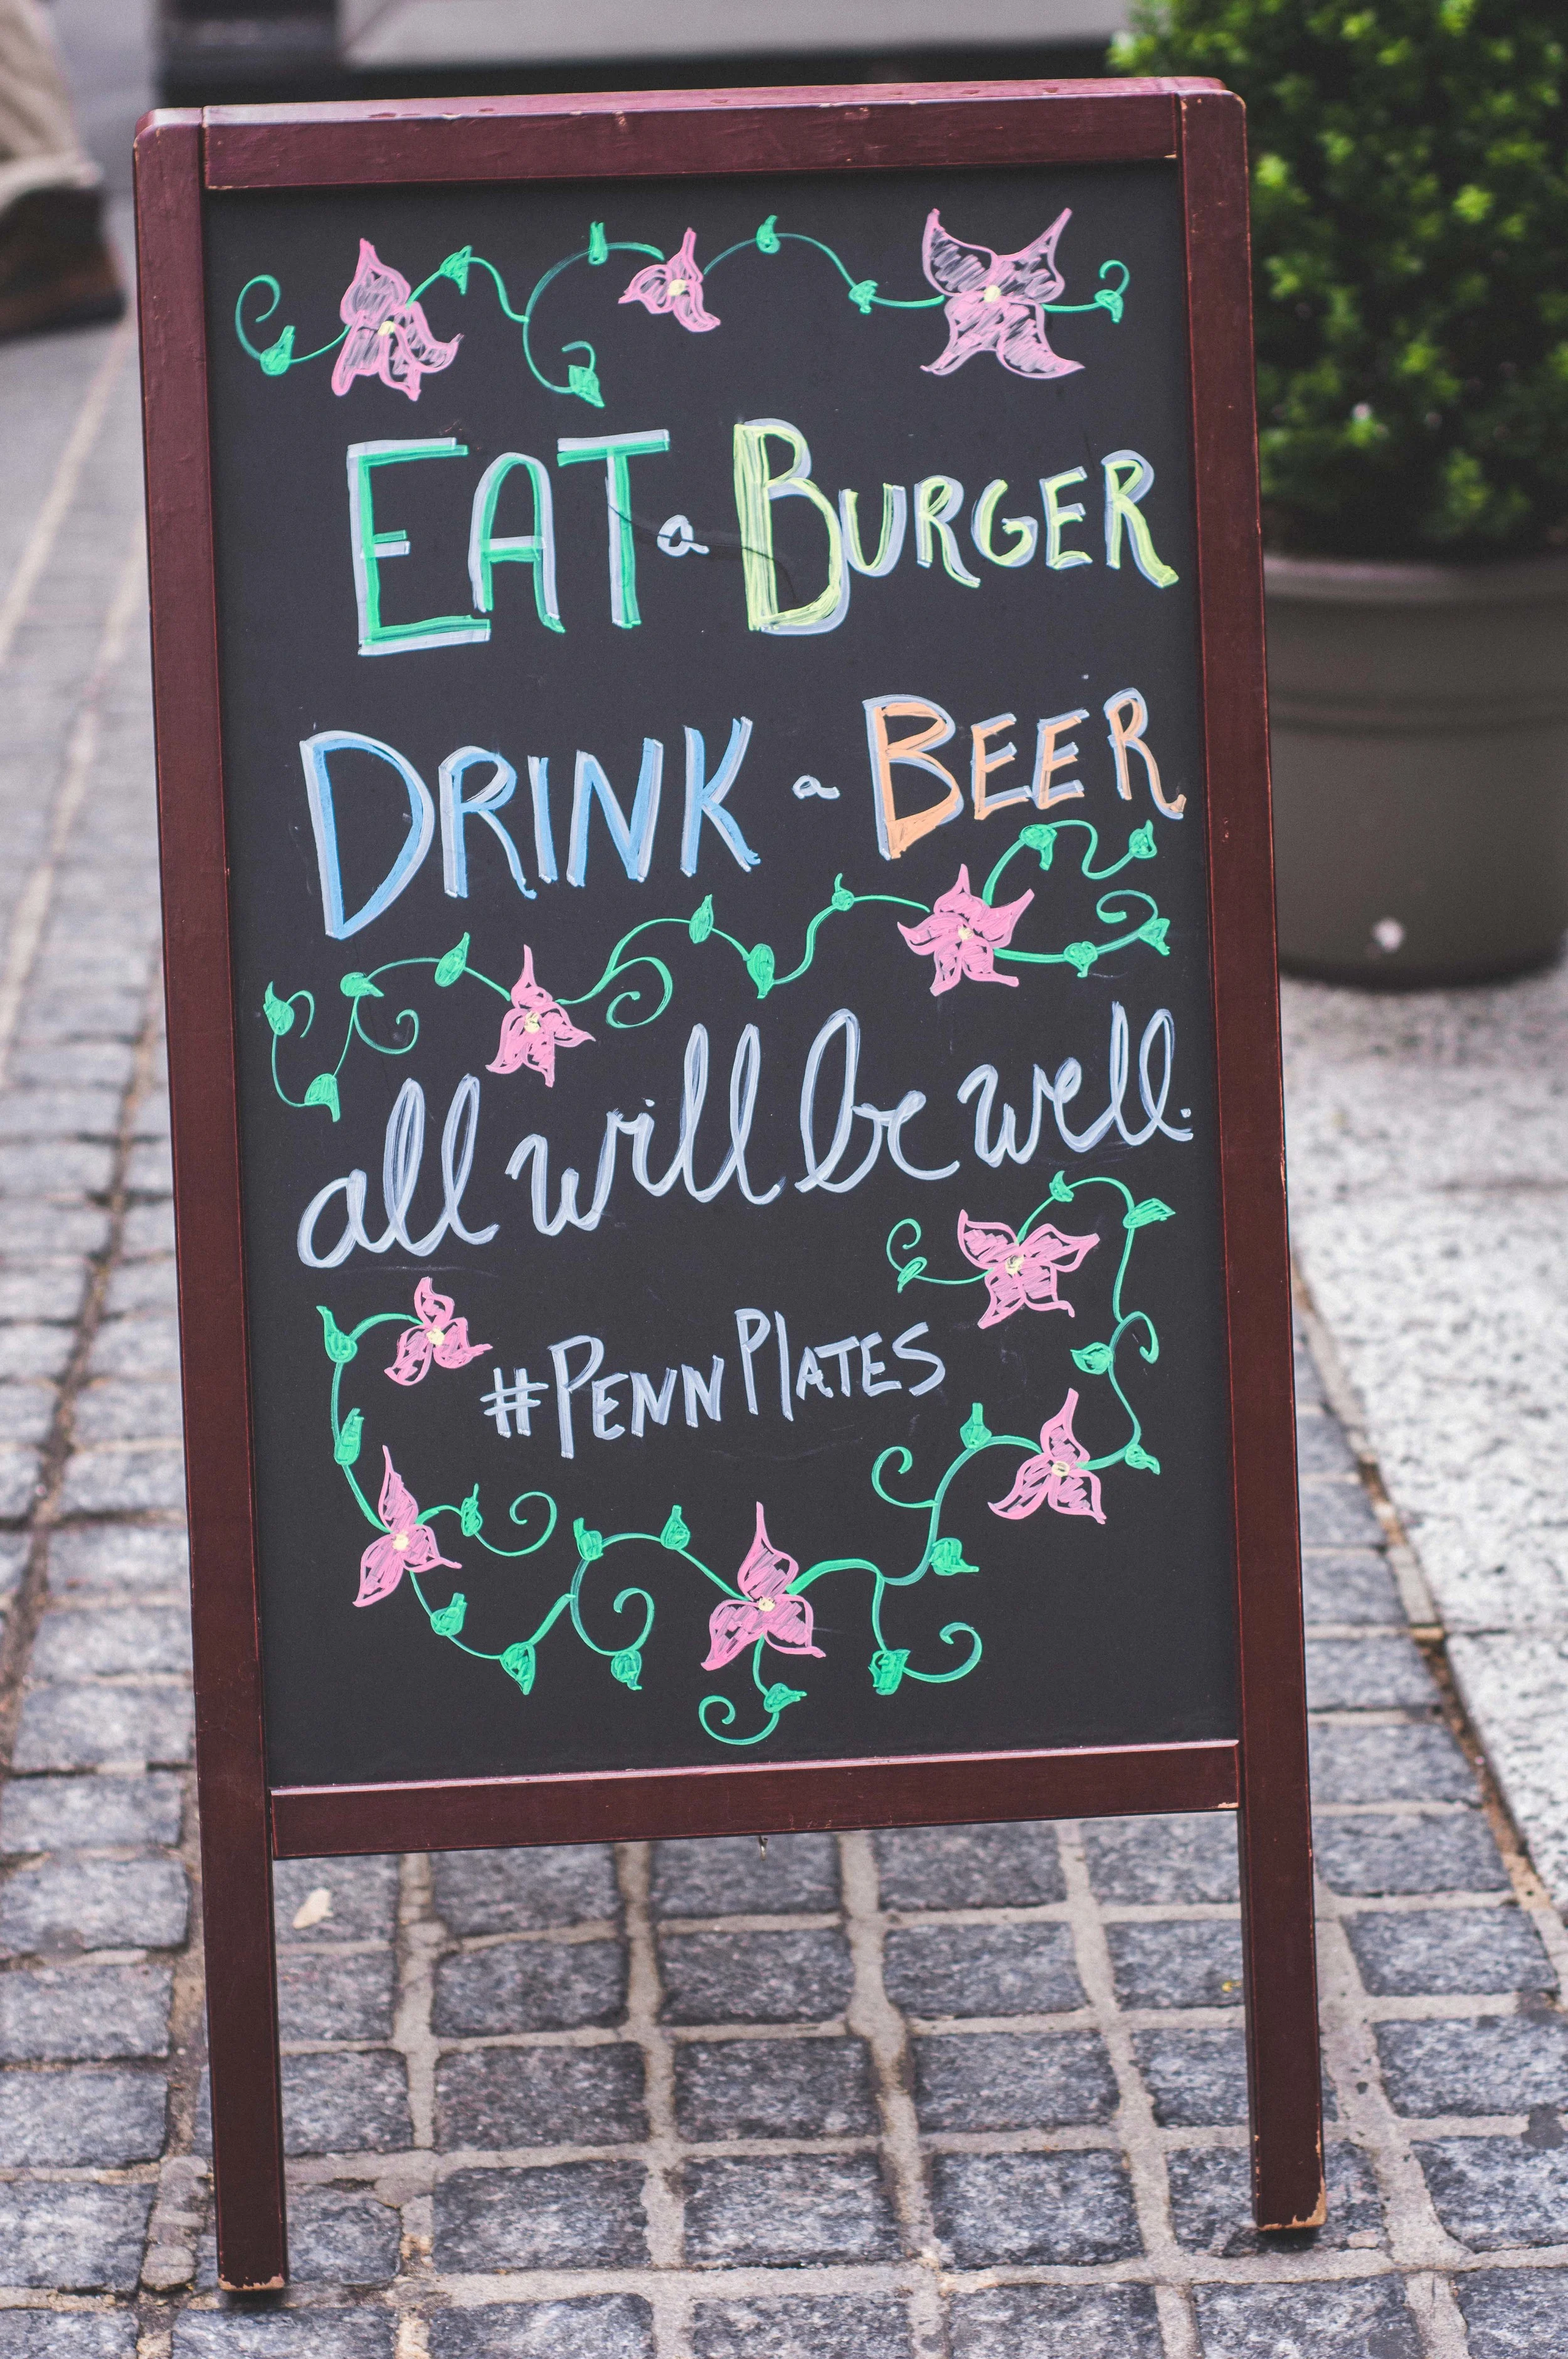 EAT a BURGER
DRINK a BEER
all will be well.
#PENN PlATES